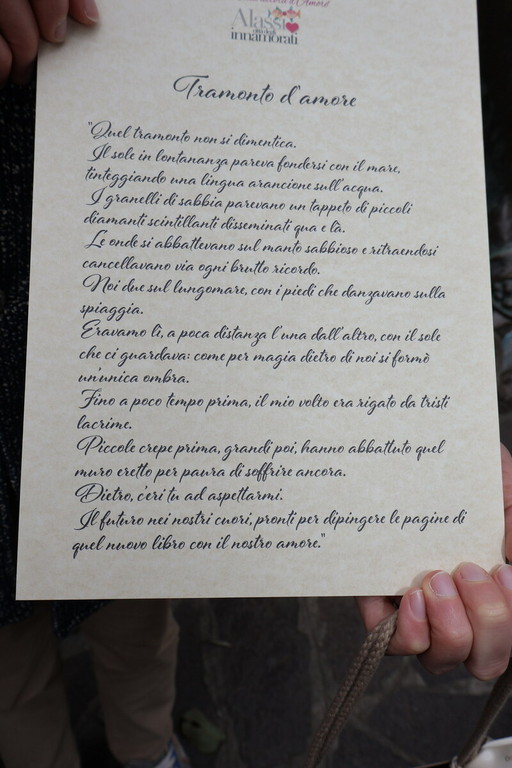 d'Amore
Alassio
città degli
innamorati
Tramonto d'amore
"Quel tramonto non si dimentica.
Il sole in lontananza pareva fondersi con il mare,
tinteggiando una lingua arancione sull'acqua.
I granelli di sabbia parevano un tappeto di piccoli
diamanti scintillanti disseminati qua e là.
Le onde si abbattevano sul manto sabbioso e ritraendosi
cancellavano via ogni brutto ricordo.
Noi due sul lungomare, con i piedi che danzavano sulla
spiaggia.
Eravamo lì, a poca distanza l'una dall'altro, con il sole
che ci guardava: come per magia dietro di noi si formò
un'unica ombra.
Fino a poco tempo prima, il mio volto era rigato da tristi
lacrime.
Piccole crepe prima, grandi poi, hanno abbattuto quel
muro eretto per paura di soffrire ancora.
Dietro, c'eri tu ad aspettarmi.
Il futuro nei nostri cuori, pronti per dipingere le pagine di
quel nuovo libro con il nostro amore."